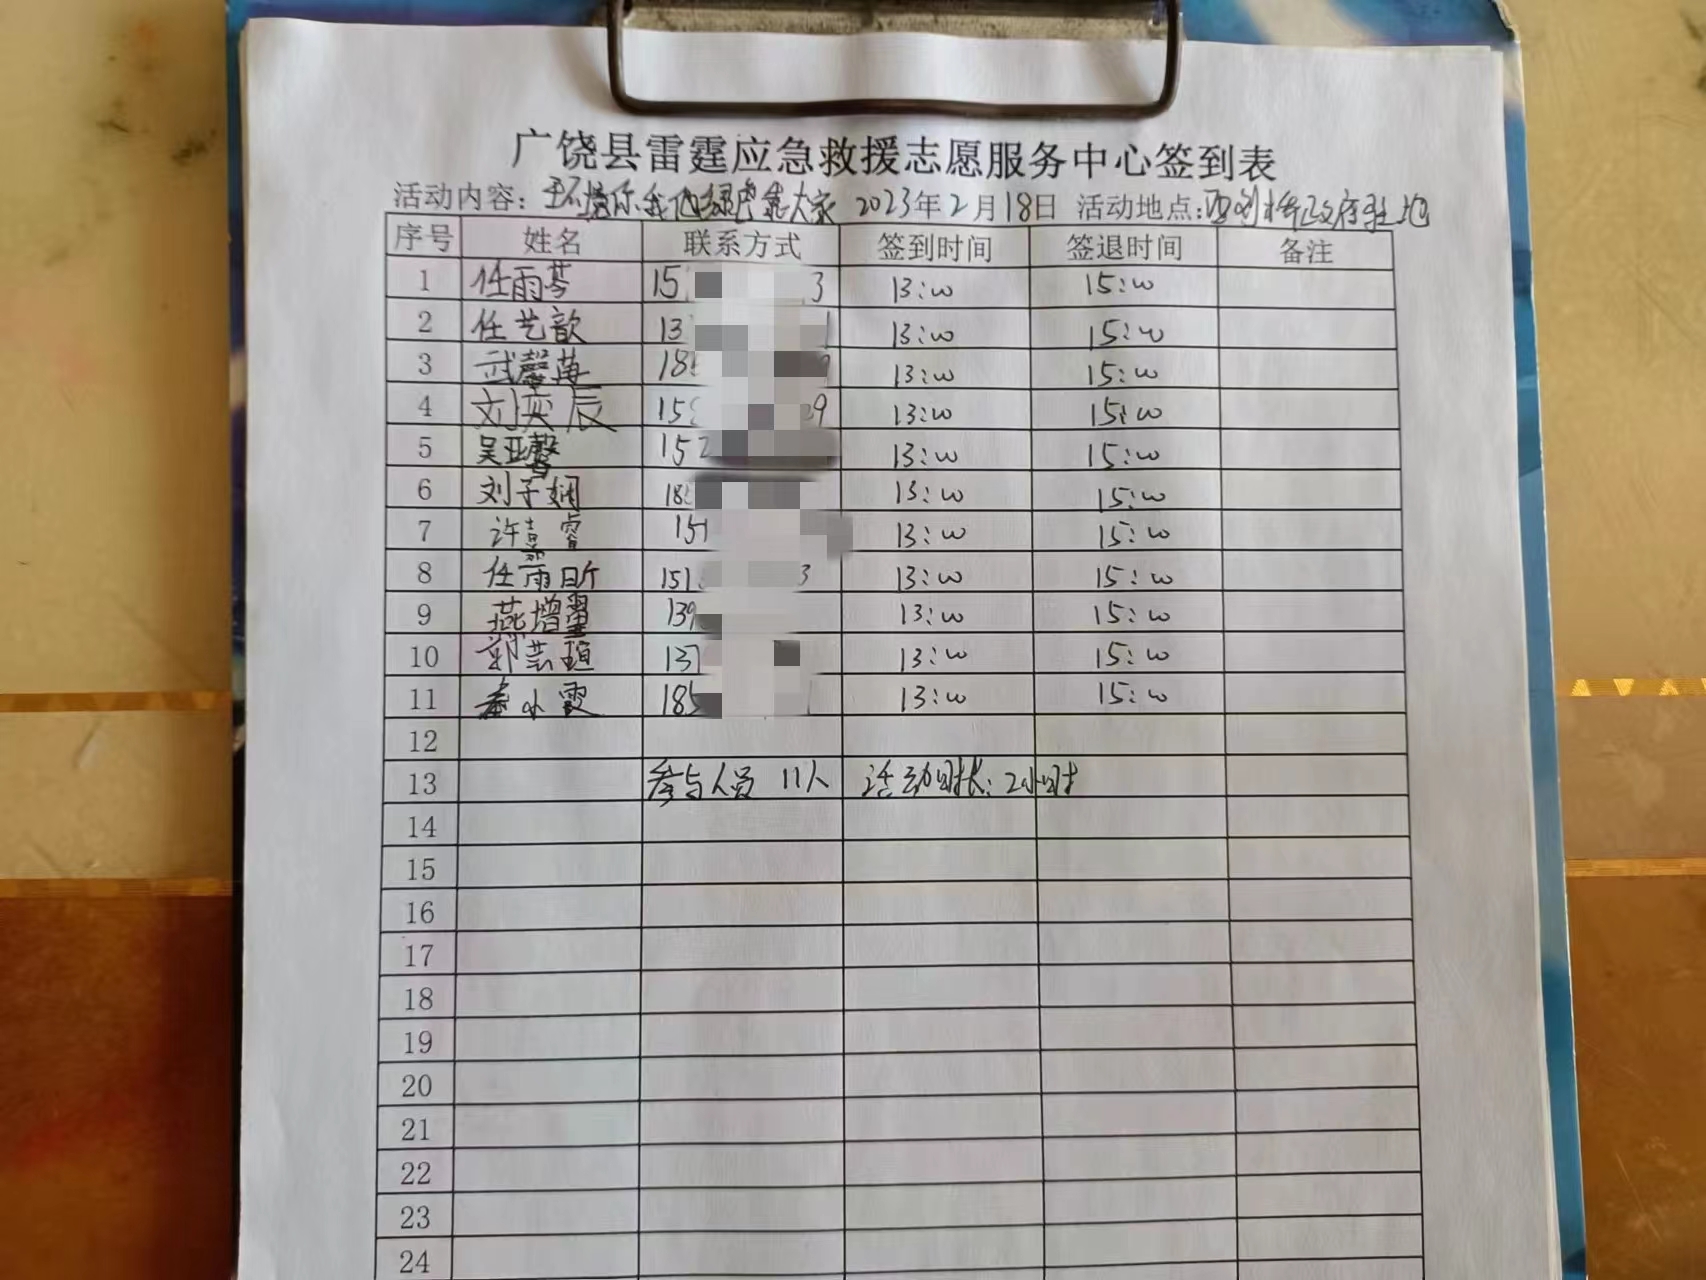 广饶县雷霆应急救援志愿服务中心签到表
活动内容：环境你我他绿色靠大家 2023年2月18日 活动地点：西刘桥政府驻地
序号 姓名 联系方式 签到时间 签退时间 备注
1 任雨芩 15 3 13:00 15:00
2 任艺歆 13 1 13:00 15:00
3 武馨苒 18 9 13:00 15:00
4 刘奕辰 15 29 13:00 15:00
5 吴亚馨 152 13:00 15:00
6 刘子娴 18 13:00 15:00
7 许嘉睿 151 13:00 15:00
8 任雨昕 151 3 13:00 15:00
9 燕增 139 13:00 15:00
10 郭芸瑄 137 13:00 15:00
11 秦小霞 185 1 13:00 15:00
12
13 参与人员 11人 活动时长：2小时
14
15
16
17
18
19
20
21
22
23
24